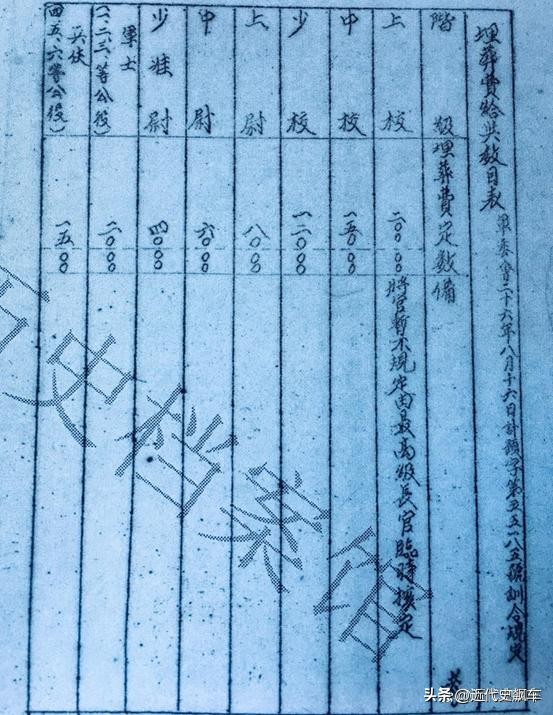 埋葬費給與数目表 軍委會二十六年八月十六日計預字第五五一八五號訓令規定
階級 埋葬費定数 備考
上校 二〇〇〇〇 將官暫不規定由最高級長官臨時核定
中校 一五〇〇〇
少校 一二〇〇〇
上尉 八〇〇〇
中尉 六〇〇〇
少准尉 四〇〇〇
軍士(一、二、三、等公役) 二〇〇〇
兵伕(四、五、六等公役) 一五〇〇
历史档案馆
头条 @近代史飙车